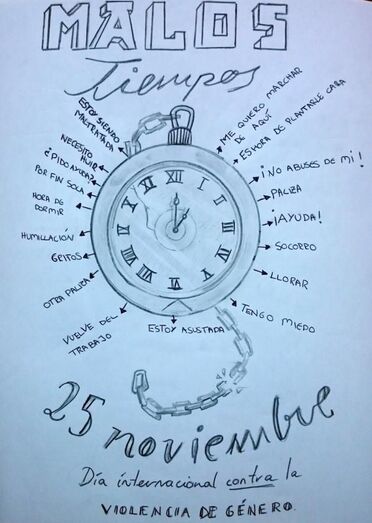 MALOS
Tiempos
ESTOY SIENDO
MALTRATADA
NECESITO
HUIR
¿PIDO AYUDA?
POR FIN SOLA
HORA DE
DORMIR
HUMILLACIÓN
GRITOS
OTRA PALIZA
VUELVE DEL
TRABAJO
ESTOY ASUSTADA
ME QUIERO MARCHAR
DE AQUÍ
ES HORA DE PLANTARLE CARA
¡NO ABUSES DE MI!
PALIZA
¡AYUDA!
SOCORRO
LLORAR
TENGO MIEDO
XII
I
II
III
IIII
V
VI
VII
VIII
IX
X
XI
25 noviembre
Día internacional contra la
VIOLENCIA DE GÉNERO.